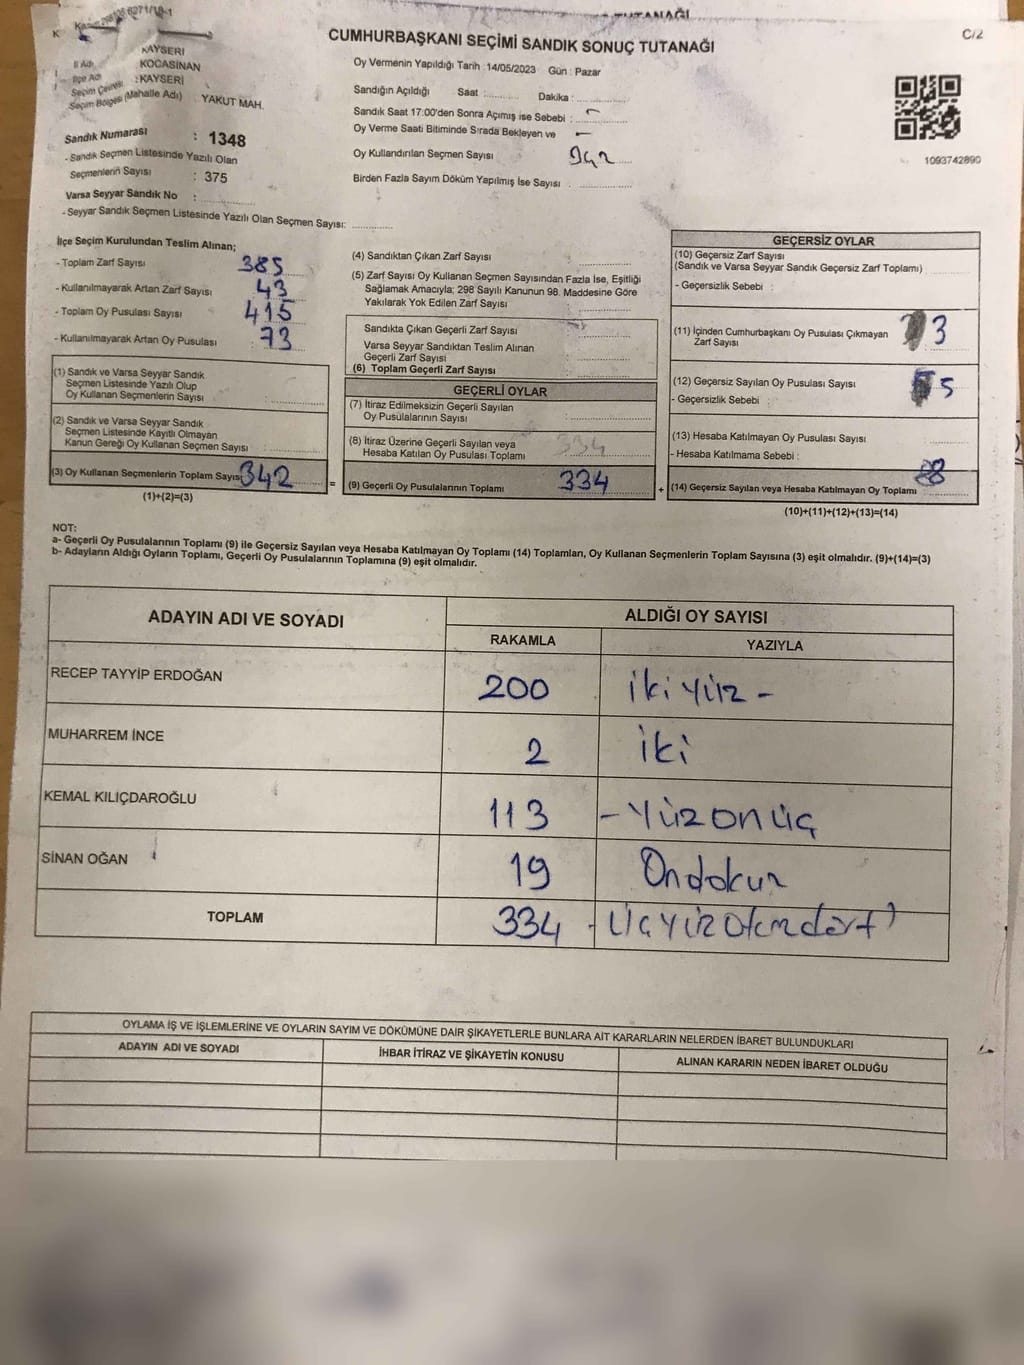 TUTANAĞI
C/2
CUMHURBAŞKANI SEÇİMİ SANDIK SONUÇ TUTANAĞI
İl Adı : KAYSERİ
İlçe Adı : KOCASİNAN
Seçim Çevresi : KAYSERİ
Seçim Bölgesi (Mahalle Adı) : YAKUT MAH.
Sandık Numarası : 1348
- Sandık Seçmen Listesinde Yazılı Olan
Seçmenlerin Sayısı : 375
Varsa Seyyar Sandık No :
- Seyyar Sandık Seçmen Listesinde Yazılı Olan Seçmen Sayısı:
Oy Vermenin Yapıldığı Tarih : 14/05/2023 Gün : Pazar
Sandığın Açıldığı Saat : Dakika :
Sandık Saat 17:00'den Sonra Açımış ise Sebebi : -
Oy Verme Saati Bitiminde Sırada Bekleyen ve -
Oy Kullandırılan Seçmen Sayısı
Birden Fazla Sayım Döküm Yapılmış İse Sayısı :
1093742890
İlçe Seçim Kurulundan Teslim Alınan;
- Toplam Zarf Sayısı 385
- Kullanılmayarak Artan Zarf Sayısı : 43
- Toplam Oy Pusulası Sayısı : 415
- Kullanılmayarak Artan Oy Pusulası : 73
(1) Sandık ve Varsa Seyyar Sandık
Seçmen Listesinde Yazılı Olup
Oy Kullanan Seçmenlerin Sayısı :
(2) Sandık ve Varsa Seyyar Sandık
Seçmen Listesinde Kayıtlı Olmayan
Kanun Gereği Oy Kullanan Seçmen Sayısı :
(3) Oy Kullanan Seçmenlerin Toplam Sayısı 342
(1)+(2)=(3)
=
(4) Sandıktan Çıkan Zarf Sayısı :
(5) Zarf Sayısı Oy Kullanan Seçmen Sayısından Fazla İse, Eşitliği
Sağlamak Amacıyla; 298 Sayılı Kanunun 98. Maddesine Göre
Yakılarak Yok Edilen Zarf Sayısı :
Sandıkta Çıkan Geçerli Zarf Sayısı :
Varsa Seyyar Sandıktan Teslim Alınan
Geçerli Zarf Sayısı :
(6) Toplam Geçerli Zarf Sayısı :
GEÇERLİ OYLAR
(7) İtiraz Edilmeksizin Geçerli Sayılan
Oy Pusulalarının Sayısı :
(8) İtiraz Üzerine Geçerli Sayılan veya
Hesaba Katılan Oy Pusulası Toplamı : 334
(9) Geçerli Oy Pusulalarının Toplamı 334
+
GEÇERSİZ OYLAR
(10) Geçersiz Zarf Sayısı
(Sandık ve Varsa Seyyar Sandık Geçersiz Zarf Toplamı)
- Geçersizlik Sebebi :
(11) İçinden Cumhurbaşkanı Oy Pusulası Çıkmayan
Zarf Sayısı 3
(12) Geçersiz Sayılan Oy Pusulası Sayısı : 5
- Geçersizlik Sebebi :
(13) Hesaba Katılmayan Oy Pusulası Sayısı
- Hesaba Katılmama Sebebi :
(14) Geçersiz Sayılan veya Hesaba Katılmayan Oy Toplamı 8
(10)+(11)+(12)+(13)=(14)
NOT:
a- Geçerli Oy Pusulalarının Toplamı (9) ile Geçersiz Sayılan veya Hesaba Katılmayan Oy Toplamı (14) Toplamları, Oy Kullanan Seçmenlerin Toplam Sayısına (3) eşit olmalıdır. (9)+(14)=(3)
b- Adayların Aldığı Oyların Toplamı, Geçerli Oy Pusulalarının Toplamına (9) eşit olmalıdır.
ADAYIN ADI VE SOYADI ALDIĞI OY SAYISI
RAKAMLA YAZIYLA
RECEP TAYYİP ERDOĞAN 200 ikiyüz -
MUHARREM İNCE 2 iki
KEMAL KILIÇDAROĞLU 113 - Yüzonüç
SİNAN OĞAN 19 Ondokuz
TOPLAM 334 - Üçyüzotuzdört
OYLAMA İŞ VE İŞLEMLERİNE VE OYLARIN SAYIM VE DÖKÜMÜNE DAİR ŞİKAYETLERLE BUNLARA AİT KARARLARIN NELERDEN İBARET BULUNDUKLARI
ADAYIN ADI VE SOYADI İHBAR İTİRAZ VE ŞİKAYETİN KONUSU ALINAN KARARIN NEDEN İBARET OLDUĞU